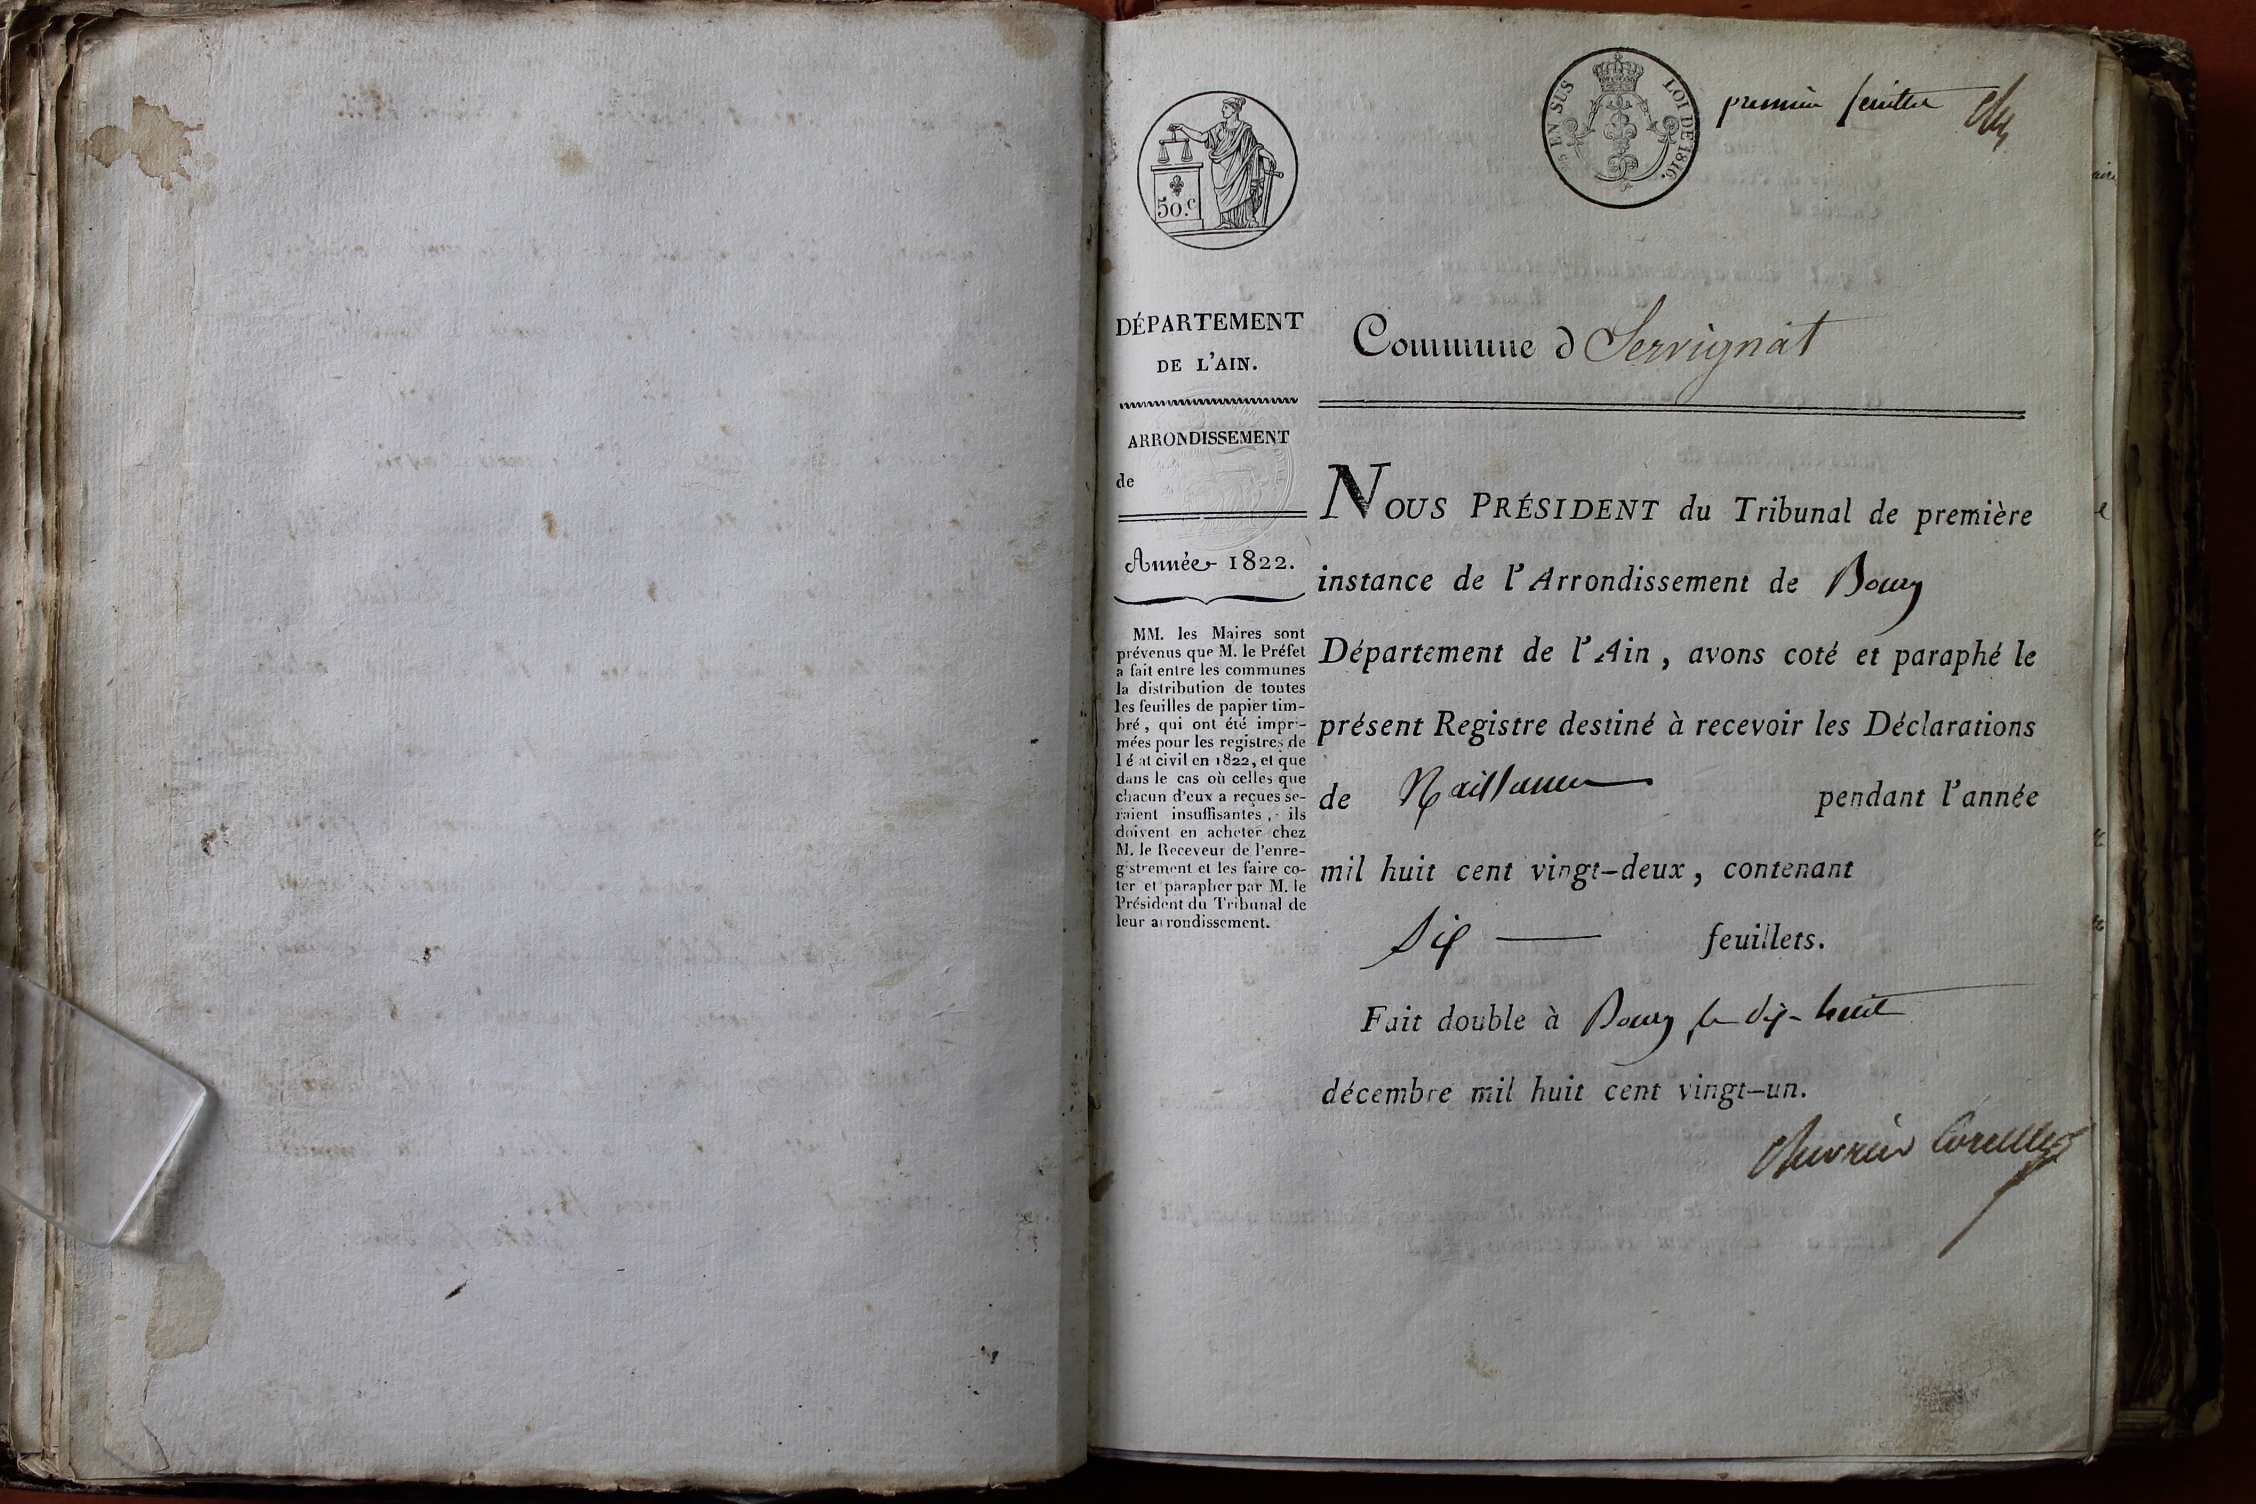 50.c
EN SUS LOI DE 1816.
premier feuillet
DÉPARTEMENT
DE L'AIN.
ARRONDISSEMENT
de
Année 1822.
MM. les Maires sont
prévenus que M. le Préfet
a fait entre les communes
la distribution de toutes
les feuilles de papier tim-
bré, qui ont été impri-
mées pour les registres de
l'état civil en 1822, et que
dans le cas où celles que
chacun d'eux a reçues se-
raient insuffisantes, ils
doivent en acheter chez
M. le Receveur de l'enre-
gistrement et les faire co-
ter et parapher par M. le
Président du Tribunal de
leur arrondissement.
Commune d Servignat
NOUS PRÉSIDENT du Tribunal de première
instance de l'Arrondissement de Bourg
Département de l'Ain, avons coté et paraphé le
présent Registre destiné à recevoir les Déclarations
de Naissance pendant l'année
mil huit cent vingt-deux, contenant
Six feuillets.
Fait double à Bourg le dix-huit
décembre mil huit cent vingt-un.